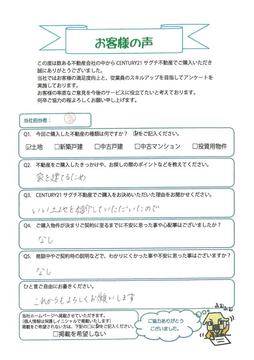 お客様の声
この度は数ある不動産会社の中から CENTURY21 サグチ不動産でご購入いただき
誠にありがとうございました。
当社ではお客様の満足度向上と、従業員のスキルアップを目指してアンケートを
実施しております。
お客様の率直なご意見を今後のサービスに役立てたいと考えております。
何卒ご協力の程よろしくお願い申し上げます。
当社担当者:
Q1. 今回ご購入した不動産の種類は何ですか? ☑をご記入ください。
☑土地 □新築戸建 □中古戸建 □中古マンション □投資用物件
Q2. 不動産をご購入したきっかけや、お探しの際のポイントなどを教えてください。
家を建てるため
Q3. CENTURY21 サグチ不動産でご購入をお決めいただいた理由をお聞かせください。
いい土地を紹介していただいたので
Q4. ご購入物件が決まりご契約に至るまでに不安に思った事や心配事はございましたか?
なし
Q5. 商談中やご契約の時の説明などで、わかりにくかった事や不安に思った事はございますか?
なし
ひと言ご自由にお書きください。
これからもよろしくお願いします
当社ホームページへ掲載させていただきます。
□掲載を希望しない
ご協力ありがとう
ございました。